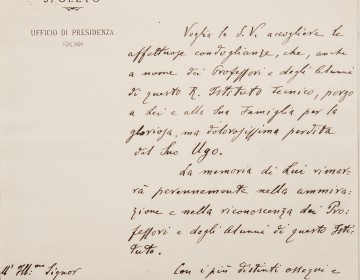 SPOLETO
UFFICIO DI PRESIDENZA
Voglia la S.V. accogliere le
affettuose condoglianze, che, anche
a nome dei Professori e degli Alunni
di questo R. Istituto Tecnico, porgo
a Lei e alla Sua Famiglia per la
gloriosa, ma dolorosissima perdita
del Suo Ugo.
La memoria di Lui rimar-
rà perennemente nella ammira-
zione e nella riconoscenza dei Pro-
fessori e degli Alunni di questo Isti-
tuto.
Con i più distinti ossequi e
All' Ill.mo Signor